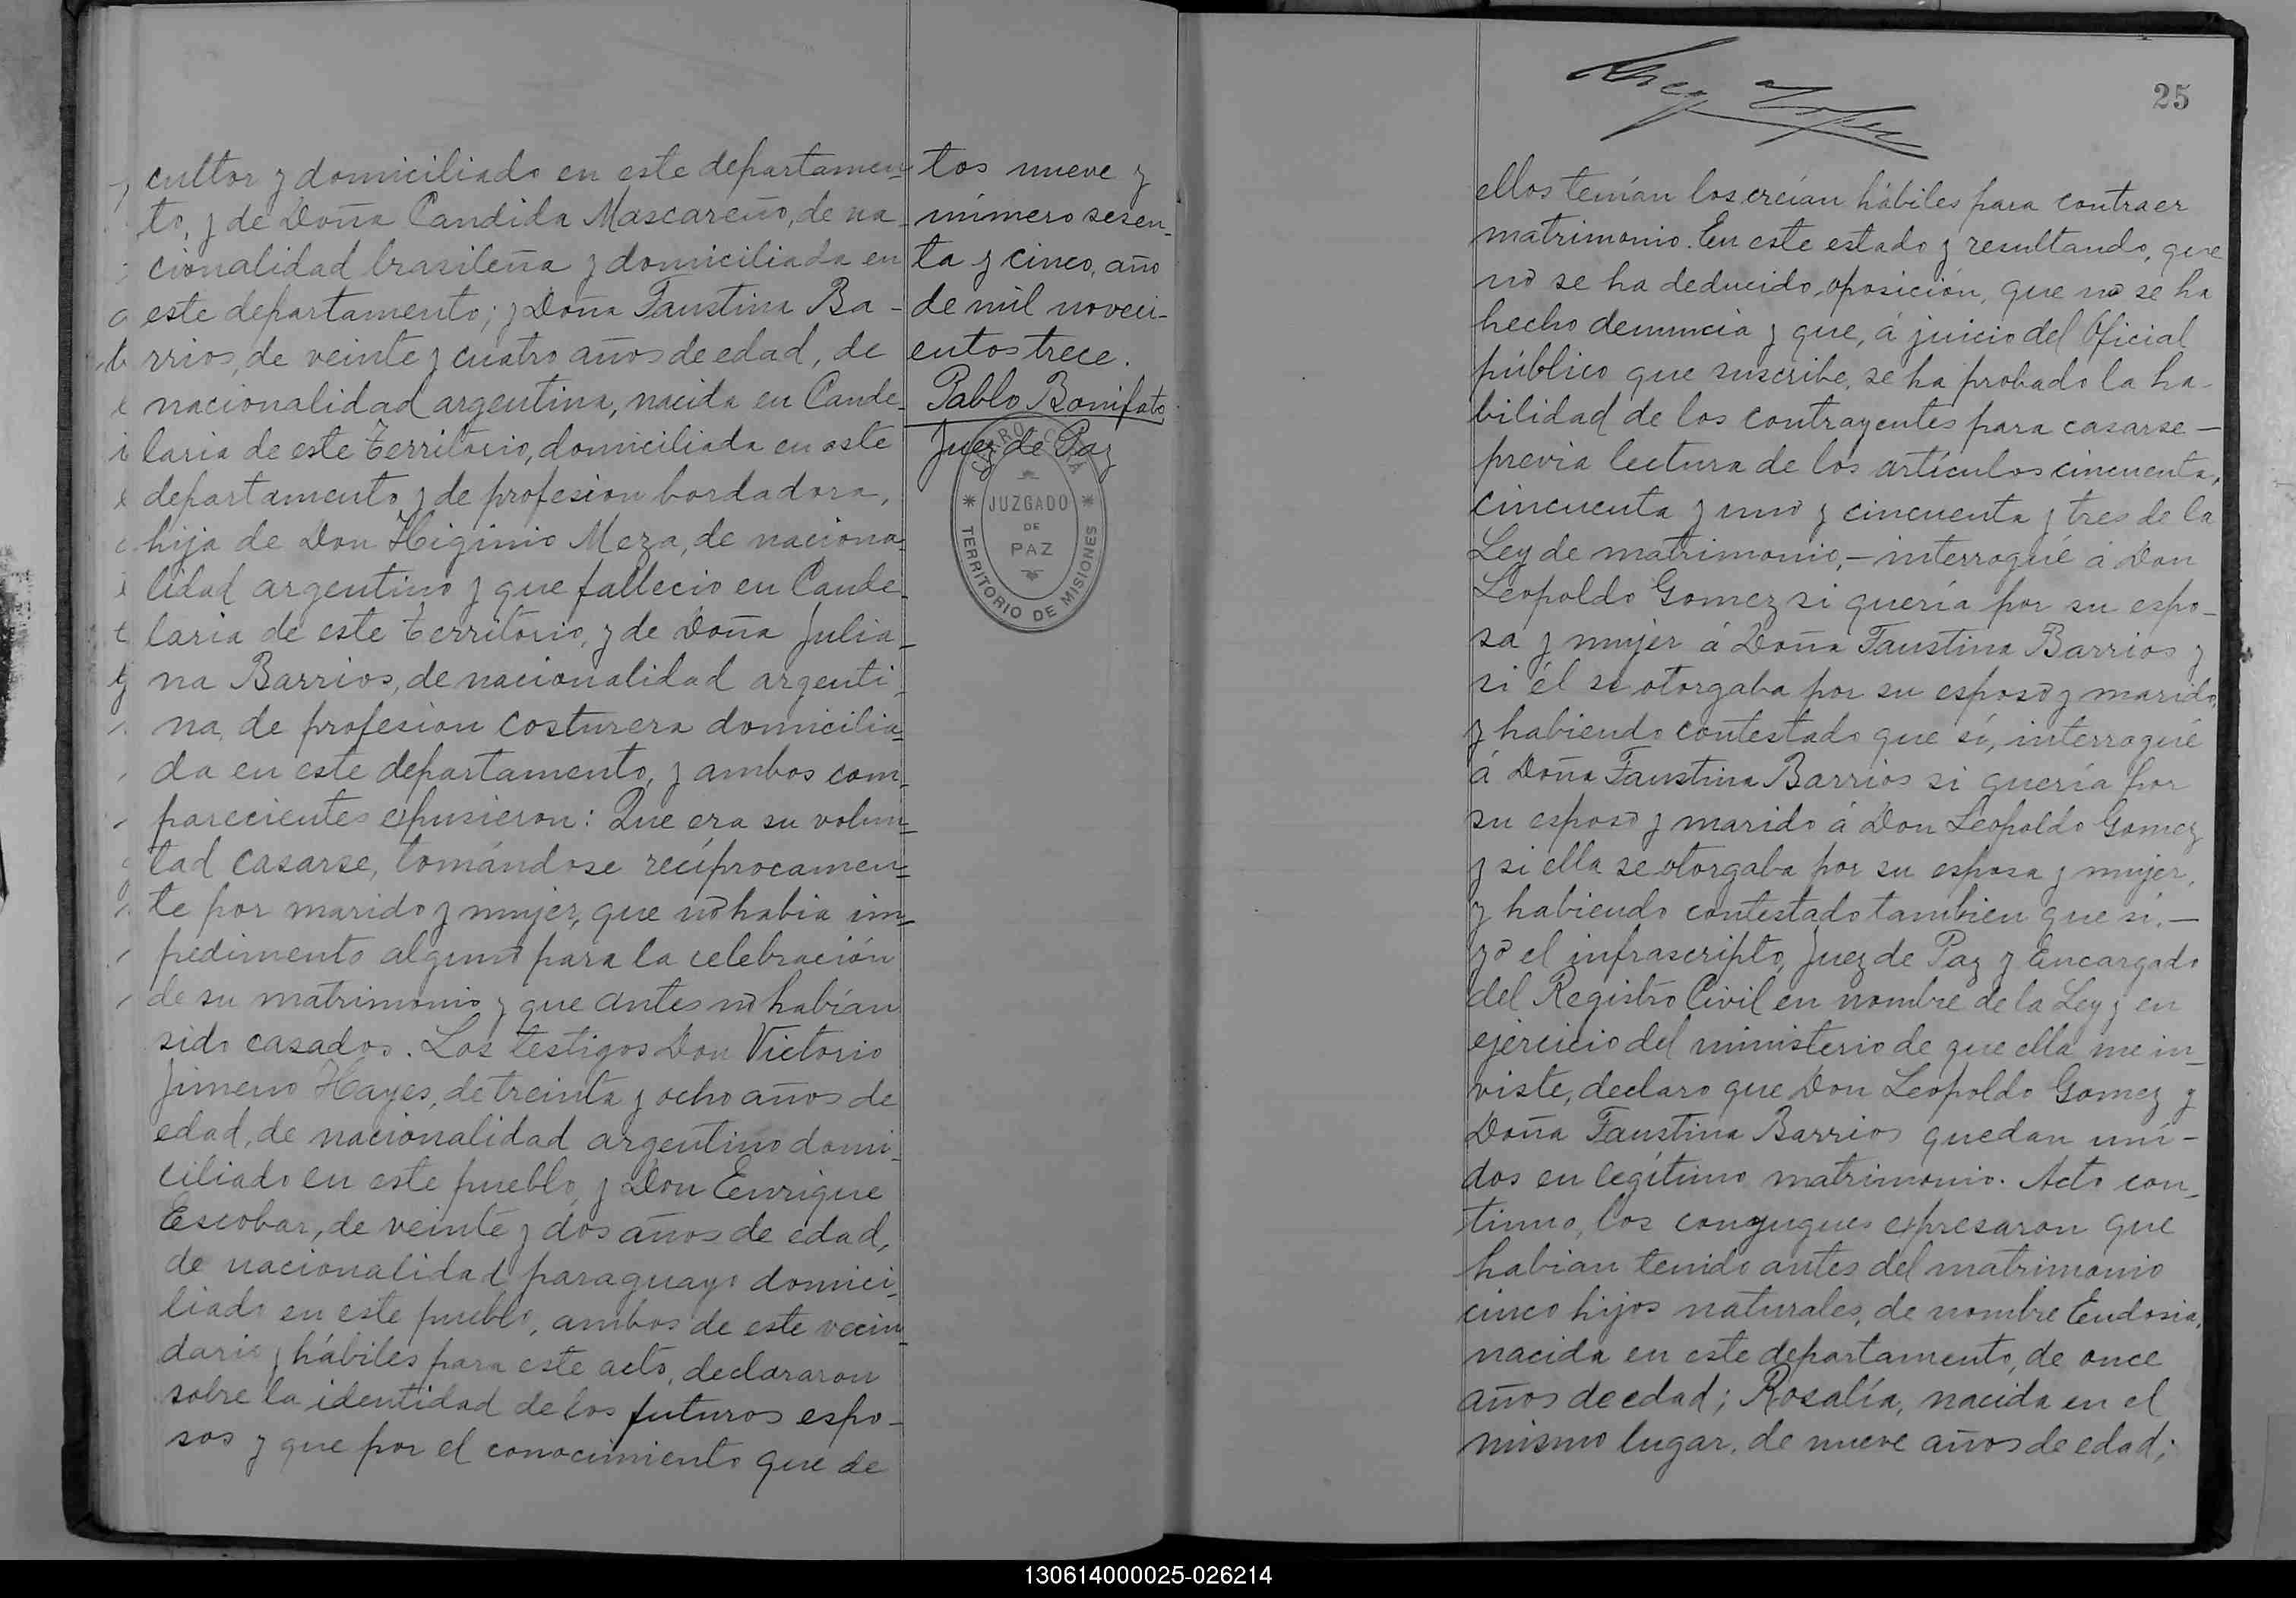 cultor y domiciliado en este departamen-
to, y de Doña Candida Mascareño, de na-
cionalidad brasileña y domiciliada en
este departamento; y Doña Faustina Ba-
rrios, de veinte y cuatro años de edad, de
nacionalidad argentina, nacida en Cande-
laria de este territorio, domiciliada en este
departamento, y de profesion bordadora,
hija de Don Higinio Meza, de naciona-
lidad argentino y que fallecio en Cande-
laria de este territorio, y de Doña Julia-
na Barrios, de nacionalidad argenti-
na, de profesion costurera domicilia-
da en este departamento, y ambos com-
parecientes espusieron: Que era su volun-
tad casarse, tomándose recíprocamen-
te por marido y mujer, que nó habia im-
pedimento alguno para la celebración
de su matrimonio y que antes nó habían
sido casados. Los testigos Don Victorio
Jimeno Hayes, de treinta y ocho años de
edad, de nacionalidad argentino domi-
ciliado en este pueblo, y Don Enrique
Escobar, de veinte y dos años de edad,
de nacionalidad paraguayo domici-
liado en este pueblo, ambos de este vecin-
dario y hábiles para este acto, declararon
sobre la identidad de los futuros espo-
sos y que por el conocimiento que de
tos nueve y
número sesen-
ta y cinco, año
de mil noveci-
entos trece.
Pablo Bonifato
Juez de Paz
CERRO CORÁ
JUZGADO
DE
PAZ
TERRITORIO DE MISIONES
25
ellos tenían los creían hábiles para contraer
matrimonio. En este estado y resultando, que
nó se ha deducido oposición, que no se ha
hecho denuncia y que, á juicio del Oficial
público que suscribe, se ha probado la ha-
bilidad de los contrayentes para casarse—
previa lectura de los artículos cincuenta,
cincuenta y uno y cincuenta y tres de la
Ley de matrimonio,— interrogué á Don
Leopoldo Gomez si quería por su espo-
sa y mujer á Doña Faustina Barrios y
si él se otorgaba por su esposo y marido,
y habiendo contestado que sí, interrogué
á Doña Faustina Barrios si quería por
su esposo y marido á Don Leopoldo Gomez
y si ella se otorgaba por su esposa y mujer,
y habiendo contestado tambien que sí.—
yó el infrascripto, Juez de Paz y Encargado
del Registro Civil en nombre de la Ley y en
ejercicio del ministerio de que ella me in-
viste, declaro que Don Leopoldo Gomez y
Doña Faustina Barrios quedan uni-
dos en legítimo matrimonio. Acto con-
tinuo, los conyugues espresaron que
habian tenido antes del matrimonio
cinco hijos naturales, de nombre Eudosia,
nacida en este departamento, de once
años de edad; Rosalía, nacida en el
mismo lugar, de nueve años de edad;
130614000025-026214